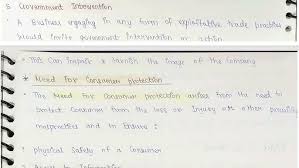 5. Government Intervention
- A Business engaging in any form of exploitative trade practices
would invite government intervention or action
- This can impair & tarnish the image of the company
* Need For Consumer protection
- The Need For Consumer protection arises from the need to
protect Consumer from the loss or Injury
malpractices and to Ensure :
• physical Safety of a Consumer
Access to Information